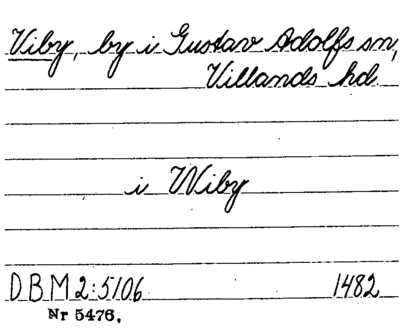 Viby, by i Gustav Adolfs sn,
Villands hd.
i Wiby
DBM 2:5106 1482
Nr 5476.